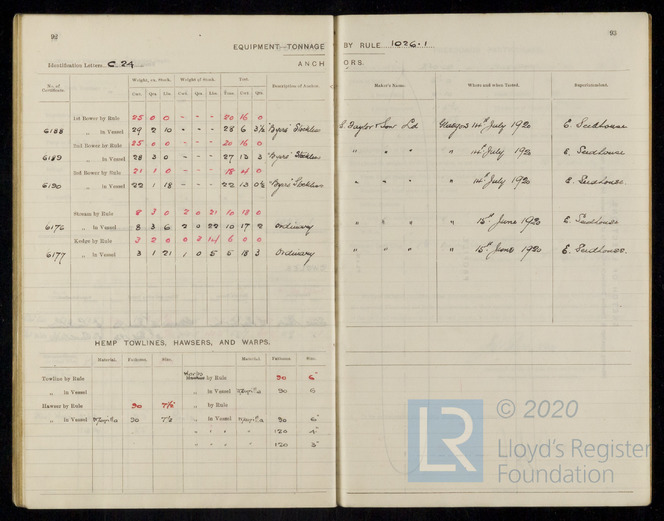 92
93
EQUIPMENT TONNAGE BY RULE 1026.1
Identification Letters C. 24 ANCHORS.
No. of Certificate. Weight, ex. Stock. Weight of Stock. Test. Description of Anchor. Maker's Name. Where and when Tested. Superintendent.
Cwt. Qrs. Lbs. Cwt. Qrs. Lbs. Tons. Cwt. Qrs.
1st Bower by Rule 25 0 0 - - - 20 16 0
6188 „ in Vessel 29 2 10 - - - 28 6 3½ "Byers" Stockless S. Taylor & Son Ld Glasgow 14th July 1920 E. Seedhouse
2nd Bower by Rule 25 0 0 - - - 20 16 0
6189 „ in Vessel 28 3 0 - - - 27 13 3 "Byers" Stockless „ „ „ „ 14th July 1920 E. Seedhouse
3rd Bower by Rule 21 1 0 - - - 18 4 0
6190 „ in Vessel 22 1 18 - - - 22 13 0½ "Byers" Stockless „ „ „ „ 14th July 1920 E. Seedhouse.
Stream by Rule 8 3 0 2 0 21 10 13 0
6176 „ in Vessel 8 3 6 2 0 22 10 17 2 Ordinary „ „ „ „ 15th June 1920 E. Seedhouse
Kedge by Rule 3 2 0 0 3 14 6 0 0
6177 „ in Vessel 3 1 21 1 0 5 5 18 3 Ordinary „ „ „ „ 15th June 1920 E. Seedhouse.
HEMP TOWLINES, HAWSERS, AND WARPS.
Material. Fathoms. Size. Material. Fathoms. Size.
Towline by Rule Warps by Rule 90 6
„ in Vessel „ in Vessel Manilla 90 6
Hawser by Rule 90 7½ „ by Rule
„ in Vessel Manilla 90 7½ „ in Vessel Manilla 90 6
„ „ „ 120 4
„ „ „ 120 3
LR © 2020
Lloyd's Register
Foundation